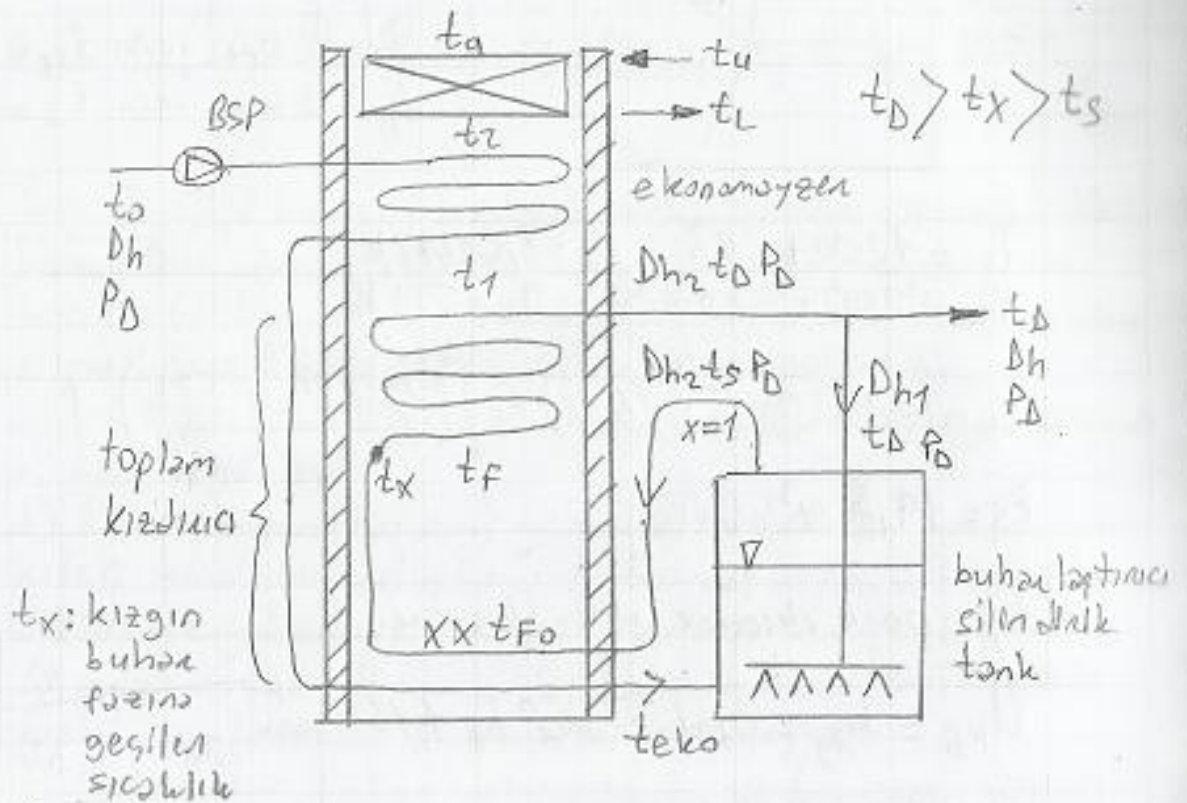 ta
tu
tL
tD > tX > tS
BSP
t2
to
Dh
PD
ekonomayzer
t1
Dh2 tD PD
tD
Dh
PD
Dh2 tS PD
x=1
Dh1
tD PD
toplam
kızdırıcı
tX
tF
buharlaştırıcı
silindirik
tank
tX: kızgın
buhar
fazına
geçilen
sıcaklık
XX tFo
teko